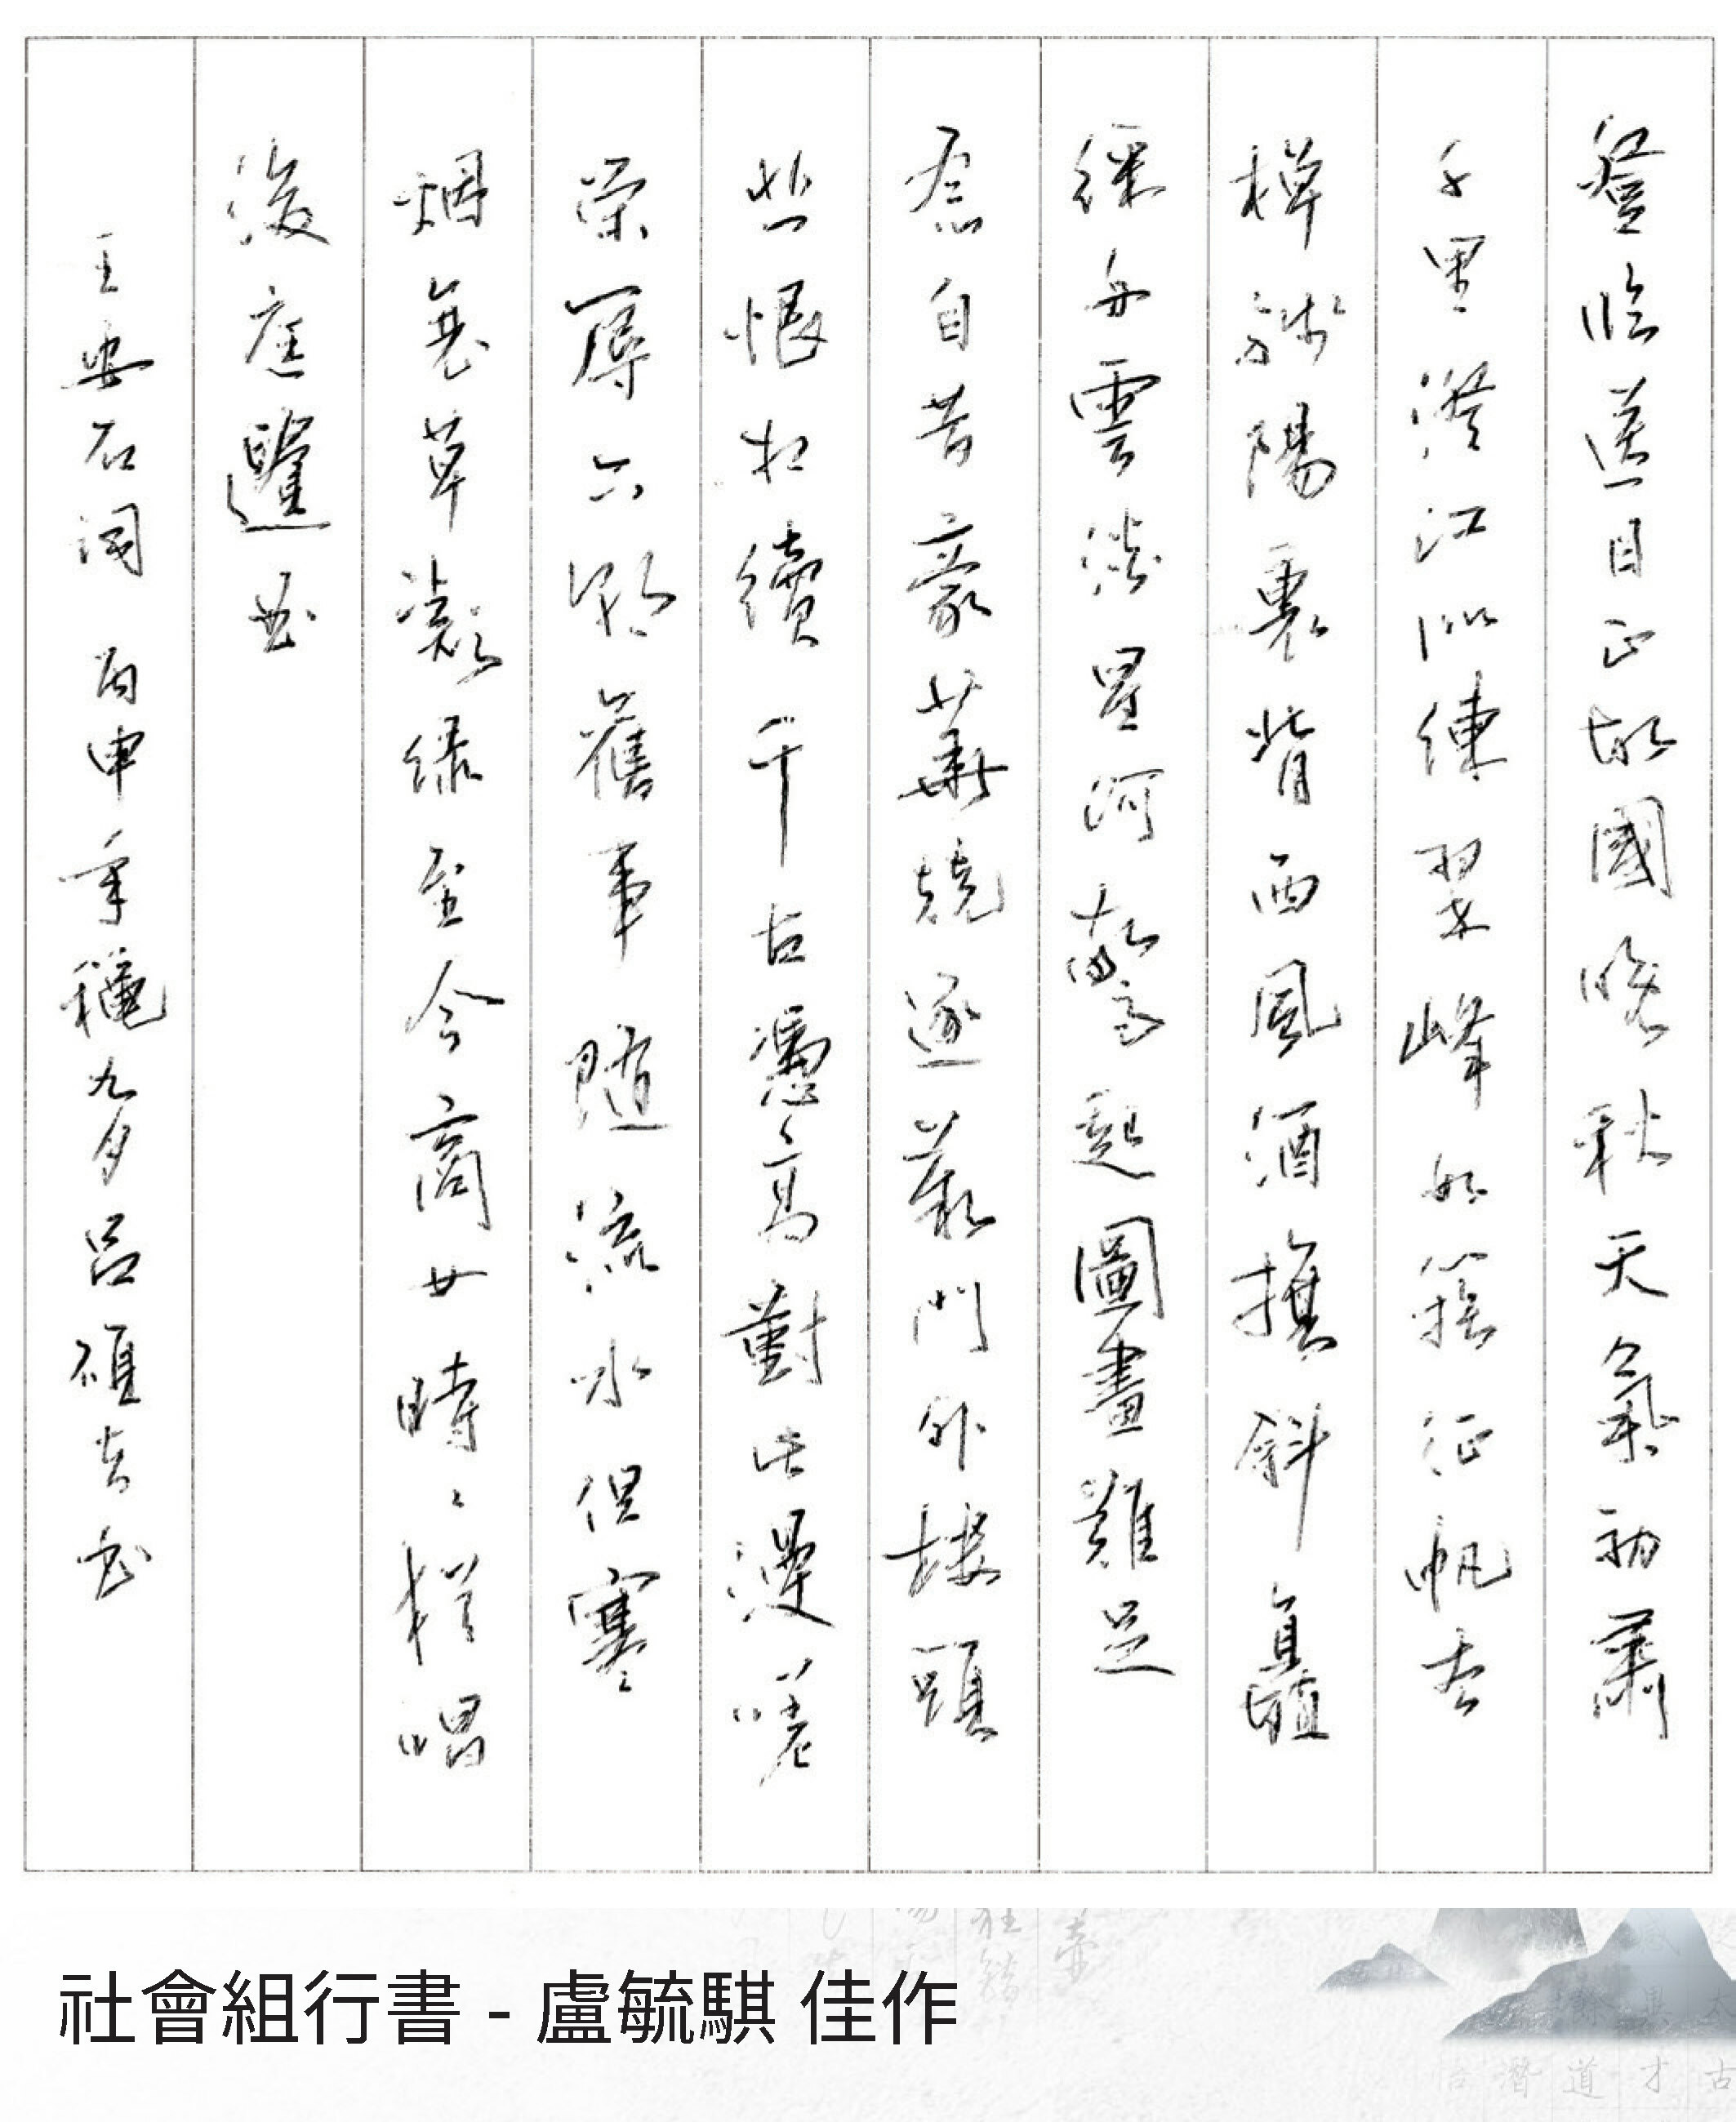 登臨送目正故國晚秋天氣初肅
千里澄江似練翠峰如簇征帆去
棹殘陽裏背西風酒旗斜矗
綵舟雲淡星河鷺起圖畫難足
念自昔豪華競逐歎門外樓頭
悲恨相續千古憑高對此漫嗟
榮辱六朝舊事隨流水但寒
烟衰草凝綠至今商女時〻猶唱
後庭遺曲
王安石詞 丙申年穐九月呂書
社會組行書 - 盧毓騏 佳作